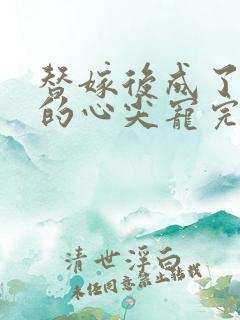 替嫁后成了
的心尖宠完
清世浮白
未经同意禁止转载